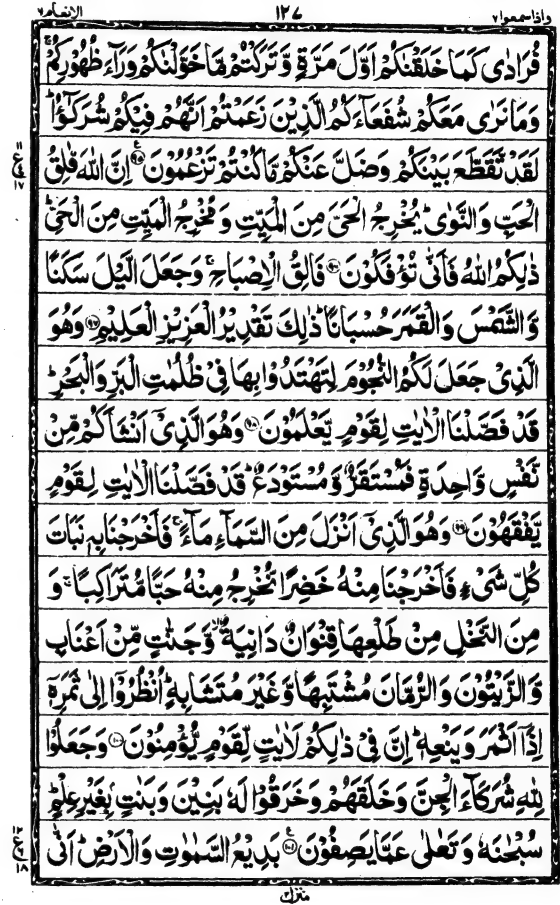 الانعام ٦ ١٢٧ واذا سمعوا ٧
فُرَادٰى كَمَا خَلَقْنٰكُمْ اَوَّلَ مَرَّةٍ وَّتَرَكْتُمْ مَّا خَوَّلْنٰكُمْ وَرَآءَ ظُهُوْرِكُمْ ۚ
وَمَا نَرٰى مَعَكُمْ شُفَعَآءَكُمُ الَّذِيْنَ زَعَمْتُمْ اَنَّهُمْ فِيْكُمْ شُرَكٰٓؤُا ؕ
لَقَدْ تَّقَطَّعَ بَيْنَكُمْ وَضَلَّ عَنْكُمْ مَّا كُنْتُمْ تَزْعُمُوْنَ ۟ اِنَّ اللّٰهَ فَالِقُ
الْحَبِّ وَالنَّوٰى ؕ يُخْرِجُ الْحَىَّ مِنَ الْمَيِّتِ وَمُخْرِجُ الْمَيِّتِ مِنَ الْحَىِّ ؕ
ذٰلِكُمُ اللّٰهُ فَاَنّٰى تُؤْفَكُوْنَ ۟ فَالِقُ الْاِصْبَاحِ ۚ وَجَعَلَ الَّيْلَ سَكَنًا
وَّالشَّمْسَ وَالْقَمَرَ حُسْبَانًا ؕ ذٰلِكَ تَقْدِيْرُ الْعَزِيْزِ الْعَلِيْمِ ۟ وَهُوَ
الَّذِىْ جَعَلَ لَكُمُ النُّجُوْمَ لِتَهْتَدُوْا بِهَا فِىْ ظُلُمٰتِ الْبَرِّ وَالْبَحْرِ ؕ
قَدْ فَصَّلْنَا الْاٰيٰتِ لِقَوْمٍ يَّعْلَمُوْنَ ۟ وَهُوَ الَّذِىْۤ اَنْشَاَكُمْ مِّنْ
نَّفْسٍ وَّاحِدَةٍ فَمُسْتَقَرٌّ وَّمُسْتَوْدَعٌ ؕ قَدْ فَصَّلْنَا الْاٰيٰتِ لِقَوْمٍ
يَّفْقَهُوْنَ ۟ وَهُوَ الَّذِىْۤ اَنْزَلَ مِنَ السَّمَآءِ مَآءً ۚ فَاَخْرَجْنَا بِهٖ نَبَاتَ
كُلِّ شَىْءٍ فَاَخْرَجْنَا مِنْهُ خَضِرًا نُّخْرِجُ مِنْهُ حَبًّا مُّتَرَاكِبًا ۚ وَ
مِنَ النَّخْلِ مِنْ طَلْعِهَا قِنْوَانٌ دَانِيَةٌ ۙ وَّجَنّٰتٍ مِّنْ اَعْنَابٍ
وَّالزَّيْتُوْنَ وَالرُّمَّانَ مُشْتَبِهًا وَّغَيْرَ مُتَشَابِهٍ ؕ اُنْظُرُوْۤا اِلٰى ثَمَرِهٖۤ
اِذَاۤ اَثْمَرَ وَيَنْعِهٖ ؕ اِنَّ فِىْ ذٰلِكُمْ لَاٰيٰتٍ لِّقَوْمٍ يُّؤْمِنُوْنَ ۟ وَجَعَلُوْا
لِلّٰهِ شُرَكَآءَ الْجِنَّ وَخَلَقَهُمْ وَخَرَقُوْا لَهٗ بَنِيْنَ وَبَنٰتٍ بِغَيْرِ عِلْمٍ ؕ
سُبْحٰنَهٗ وَتَعٰلٰى عَمَّا يَصِفُوْنَ ۟ بَدِيْعُ السَّمٰوٰتِ وَالْاَرْضِ ؕ اَنّٰى
منزل